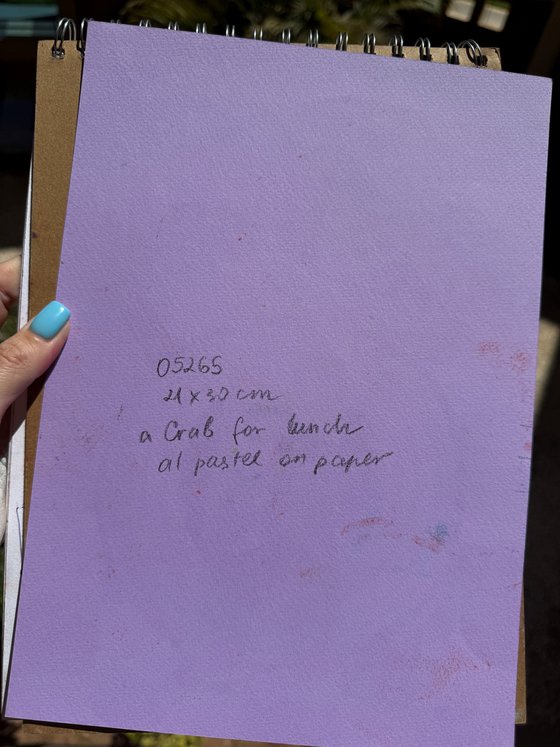 05265
21 x 30 cm
a Crab for lunch
al pastel on paper